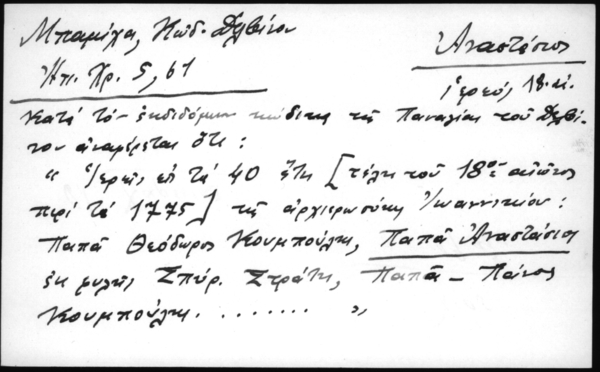 Μπαμίχα, Κώδ. Δελβίνου
Ἠπ. Χρ. 5, 61
Ἀναστάσιος
ἱερεύς, 18 αἰ.
Κατά τό ἐκδιδόμενον κώδικα τῆς Παναγίας τοῦ Δελβί-
νου ἀναφέρεται ὅτι:
" Ἱερεῖς ἐπί τά 40 ἔτη [τέλη τοῦ 18ου αἰῶνος
περί τά 1775] τῆς ἀρχιερωσύνης Ἰωαννικίου:
Παπᾶ Θεόδωρος Κουμπούλης, Παπᾶ Ἀναστάσιος
ἐκ φυλῆς Σπύρ. Στράτη, Παπᾶ - Πάνος
Κουμπούλης........ "